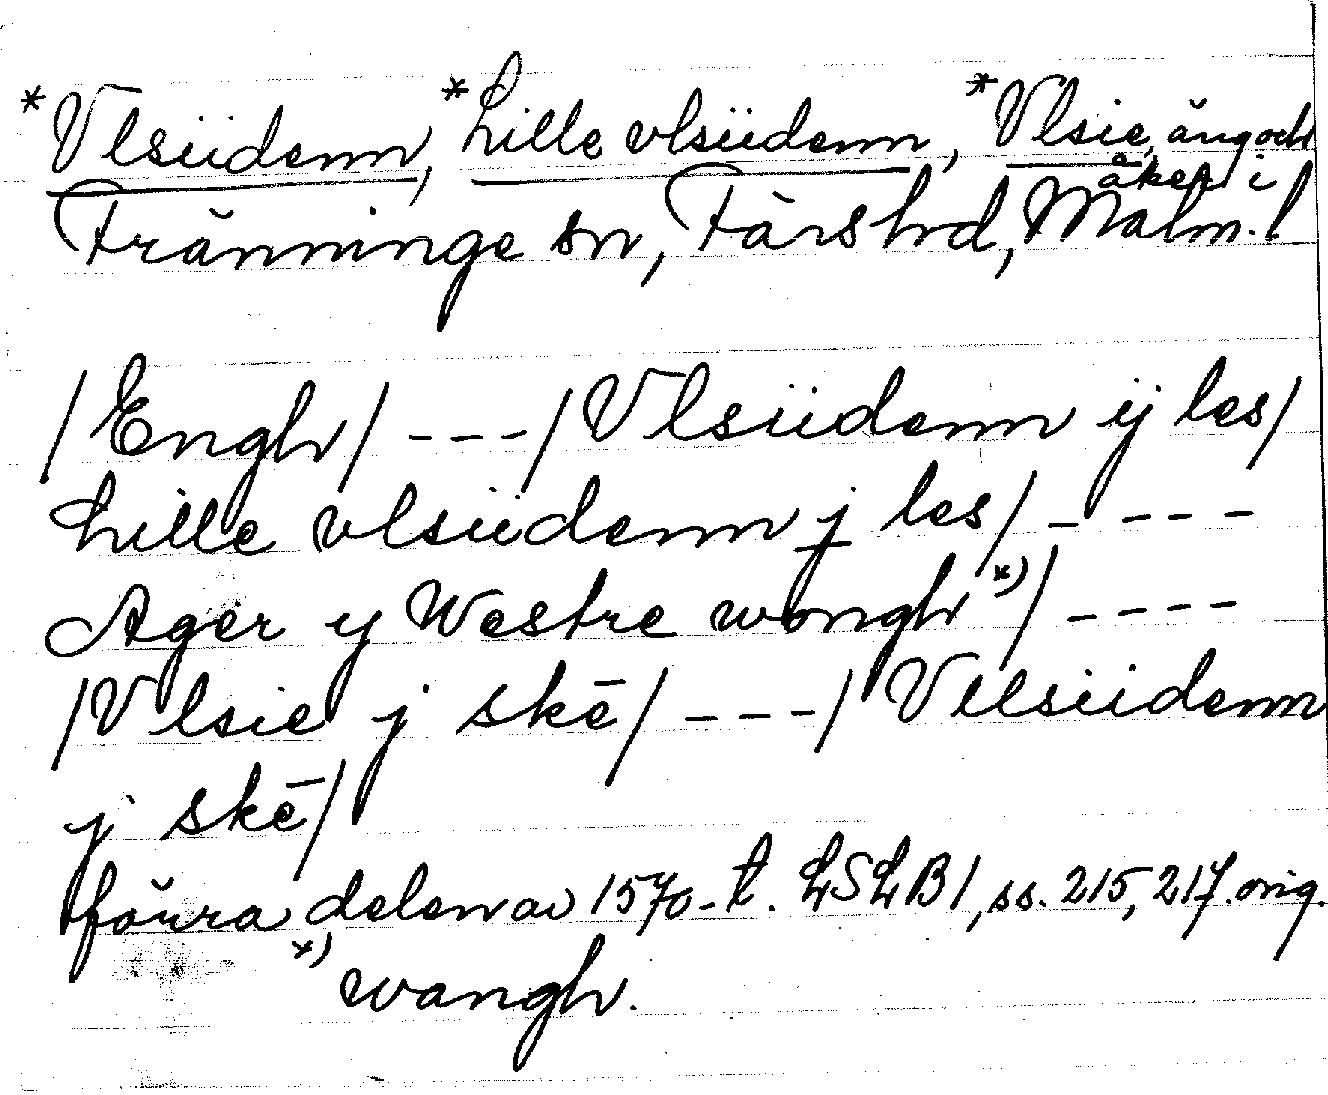 *Vlsiidenn, *Lille vlsiidenn, *Vlsie, äng och åker i
Fränninge sn, Färs hd, Malm. l
/Engh/ ---/Vlsiidenn ij les/
Lille vlsiidenn j les/ ----
Ager y Westre wongh*)/ ----
/Vlsie j skē/ ---/ Vllsiidenn
j skē/
förra delen av 1570-t. LSLB1, ss. 215, 217. orig.
*) wangh.